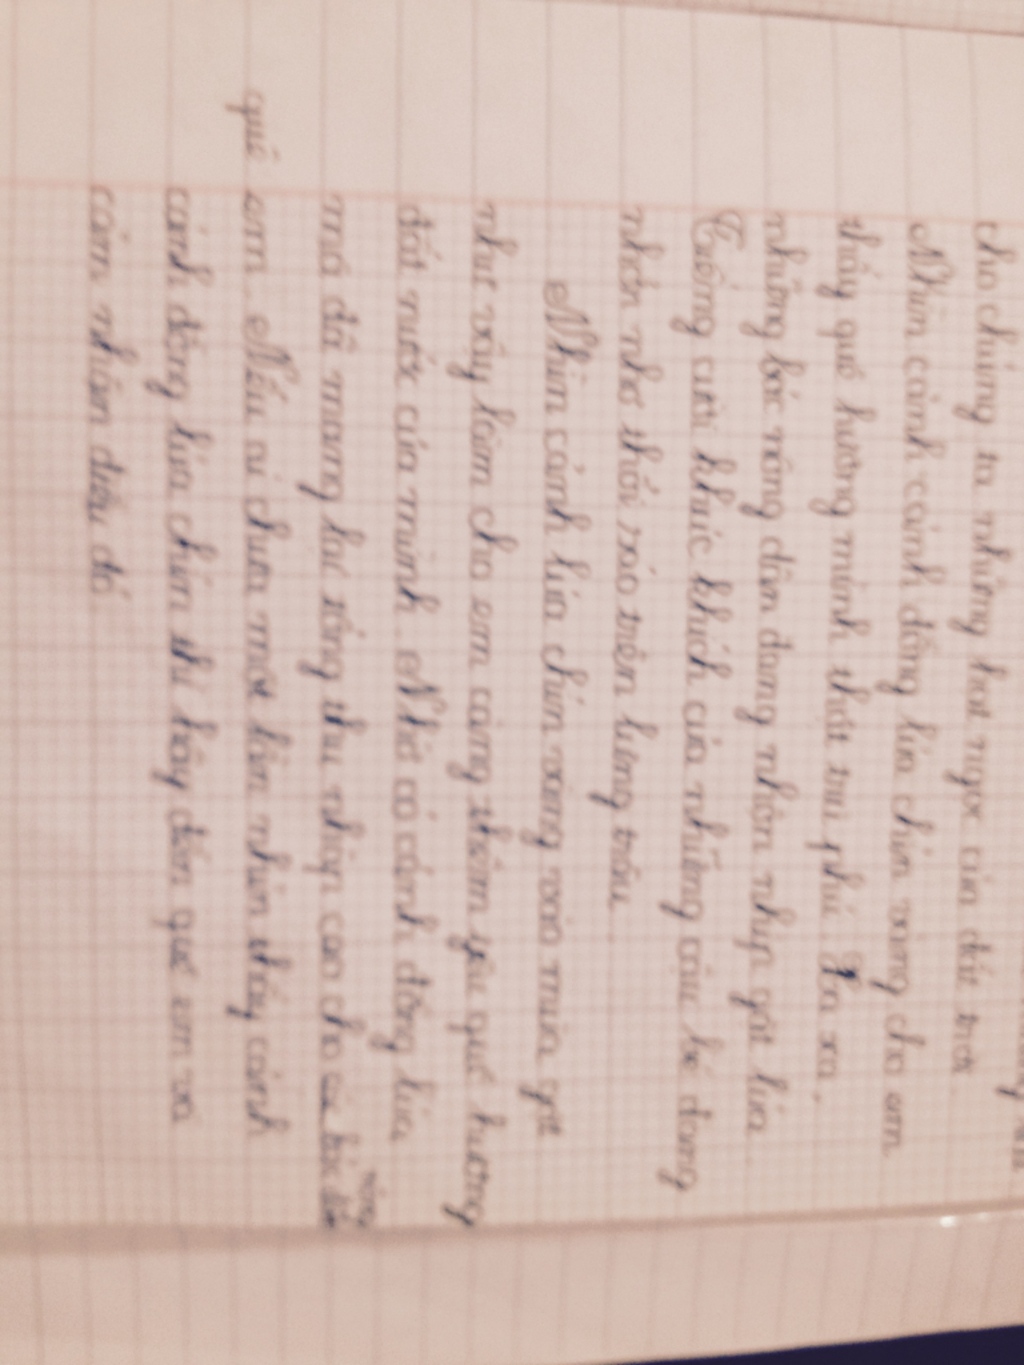 cho chúng ta những hạt ngọc của đất trời.
Nhìn cảnh cánh đồng lúa chín vàng cho em
thấy quê hương mình thật trù phú. Xa xa,
những bác nông dân đang nhộn nhịp gặt lúa.
Tiếng cười khúc khích của những cậu bé đang
nhởn nhơ thổi sáo trên lưng trâu.
Nhìn cảnh lúa chín vàng vào mùa gặt
như vậy làm cho em càng thêm yêu quê hương
đất nước của mình. Nhờ có cánh đồng lúa
mà đã mang lại nông thu nhập cao cho các bác nông dân
quê em. Nếu ai chưa một lần nhìn thấy cảnh
cánh đồng lúa chín thì hãy đến quê em và
cảm nhận điều đó.